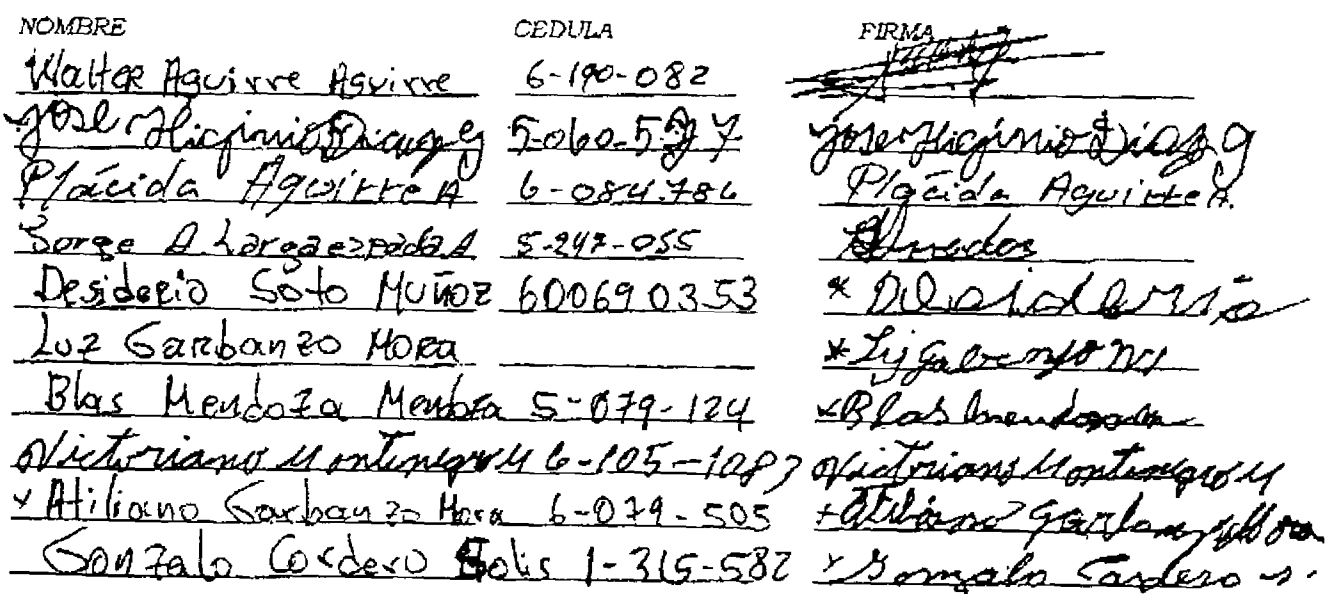 NOMBRE CEDULA FIRMA
Walter Aguirre Aguirre 6-190-082
Jose Higinio Diaz G 5-060-527 Jose Higinio Diaz G
Plácida Aguirre A 6-084.786 Plácida Aguirre A.
Jorge A. Largaezpada A 5-247-055
Desiderio Soto Muñoz 600690353 * Desiderio
Luz Garbanzo Mora *
Blas Mendoza Mendoza 5-079-124 xBlas Mendoza
Victoriano Montenegro M 6-105-1083 Victoriano Montenegro M
x Atiliano Garbanzo Mora 6-079-505 +Atiliano Garbanzo Mora
Gonzalo Cordero Solis 1-315-582 x Gonzalo Cordero S.